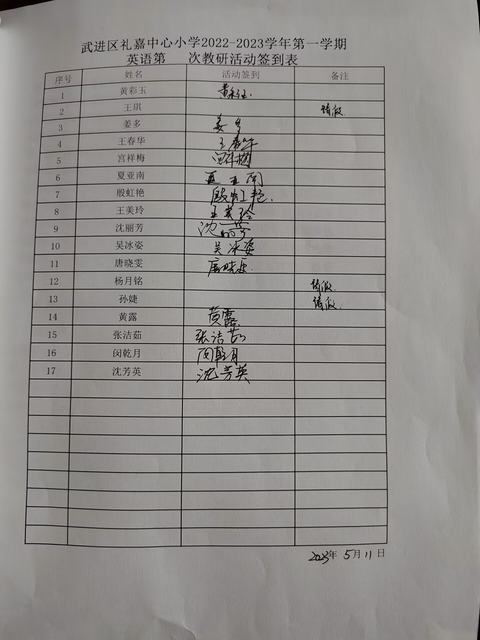 武进区礼嘉中心小学2022-2023学年第一学期
英语第 次教研活动签到表
序号 姓名 活动签到 备注
1 黄彩玉 黄彩玉
2 王琪 请假
3 姜多 姜多
4 王春华 王春华
5 宫祥梅 宫祥梅
6 夏亚南 夏亚南
7 殷虹艳 殷虹艳
8 王美玲 王美玲
9 沈丽芳 沈丽芳
10 吴冰姿 吴冰姿
11 唐晓雯 唐晓雯
12 杨月铭 请假
13 孙婕 请假
14 黄露 黄露
15 张洁茹 张洁茹
16 闵乾月 闵乾月
17 沈芳英 沈芳英
2023年 5月 11日